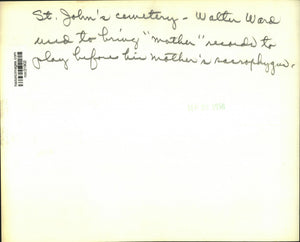 St. John's cemetery - Walter Ward
used to bring "mother" records to
play before his mother's sarcophygus.